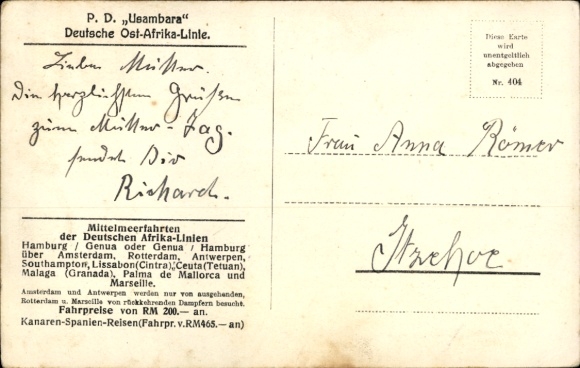 P. D. „Usambara"
Deutsche Ost-Afrika-Linie.
Lieben Mutter.
Die herzlichsten Grüße
zum Mutter-Tag.
sendet Dir
Richard.
Mittelmeerfahrten
der Deutschen Afrika-Linien
Hamburg / Genua oder Genua / Hamburg
über Amsterdam, Rotterdam, Antwerpen,
Southampton, Lissabon(Cintra), Ceuta(Tetuan),
Malaga (Granada), Palma de Mallorca und
Marseille.
Amsterdam und Antwerpen werden nur von ausgehenden,
Rotterdam u. Marseille von rückkehrenden Dampfern besucht.
Fahrpreise von RM 200.— an.
Kanaren-Spanien-Reisen(Fahrpr.v.RM465.— an)
Diese Karte
wird
unentgeltlich
abgegeben
Nr. 404
Frau Anna Römer
Itzehoe